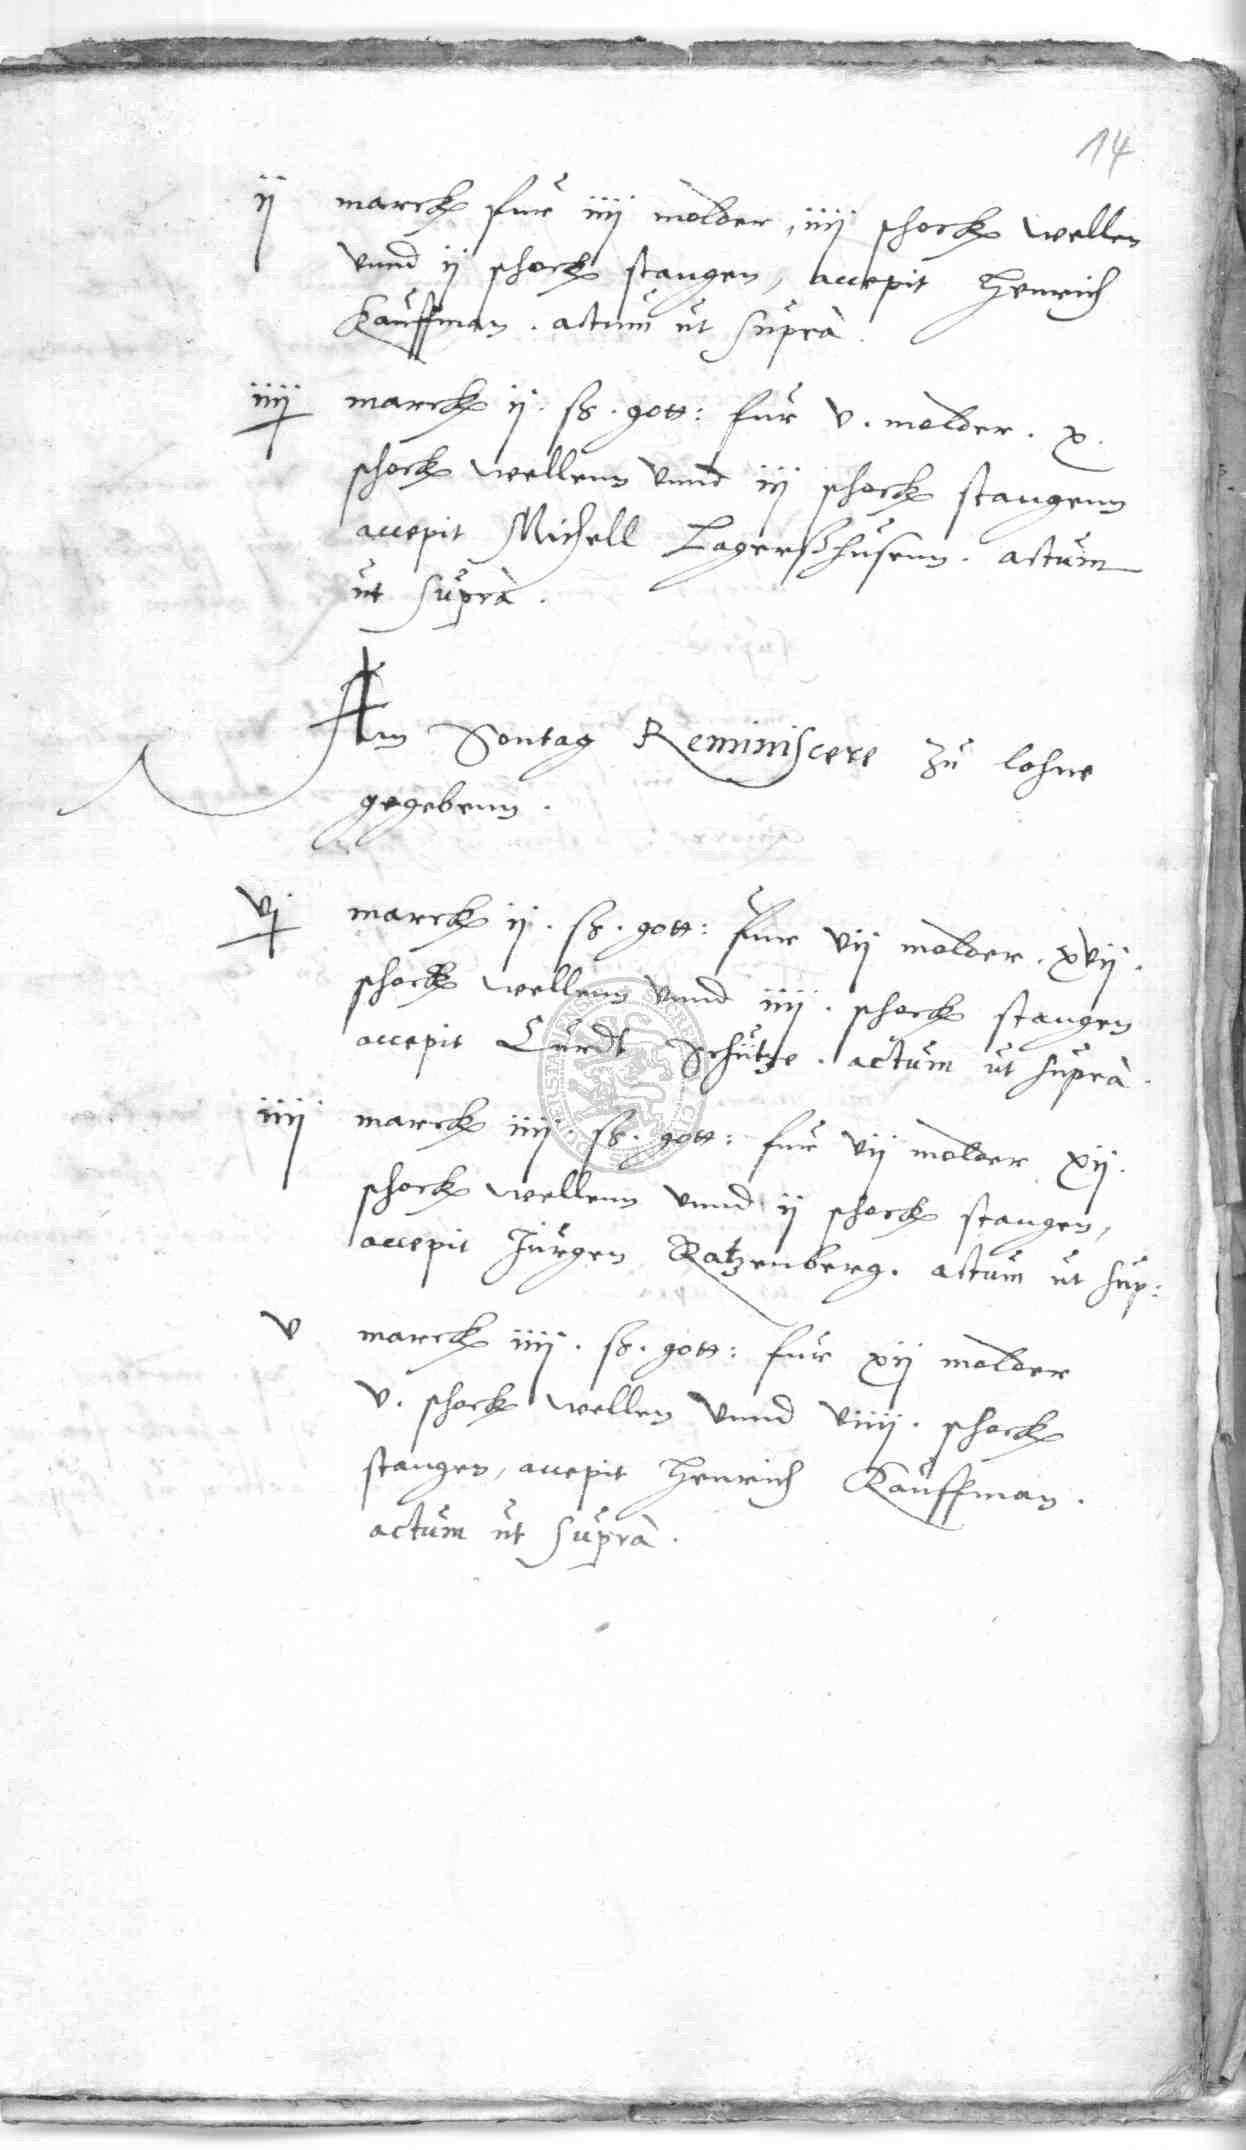 14
ij marck fur iiij molder, iiij schock wellen
vnnd ij schock stangen, accepit Henrich
Kauffman. actum ut supra.
iiij marck ij. ß. gott: fur v. molder. x.
schock wellenn vnnd iij schock stangenn
accepit Michell Lagerßhusenn. actum
ut supra.
Am Sontag Reminiscere zu lohne
gegebenn.
vj marck ij. ß. gott: fur vij molder. xvij.
schock wellenn vnnd iiij. schock stangen
accepit Curdt Schutze. actum ut supra.
iiij marck iiij. ß. gott: fur vij molder xij.
schock wellenn vnnd ij schock stangen,
accepit Jurgen Katzenberg. actum ut sup:
v marck iiij. ß. gott: fur xij molder
v. schock wellen vnnd viiij. schock
stangen, accepit Henrich Kauffman.
actum ut supra.